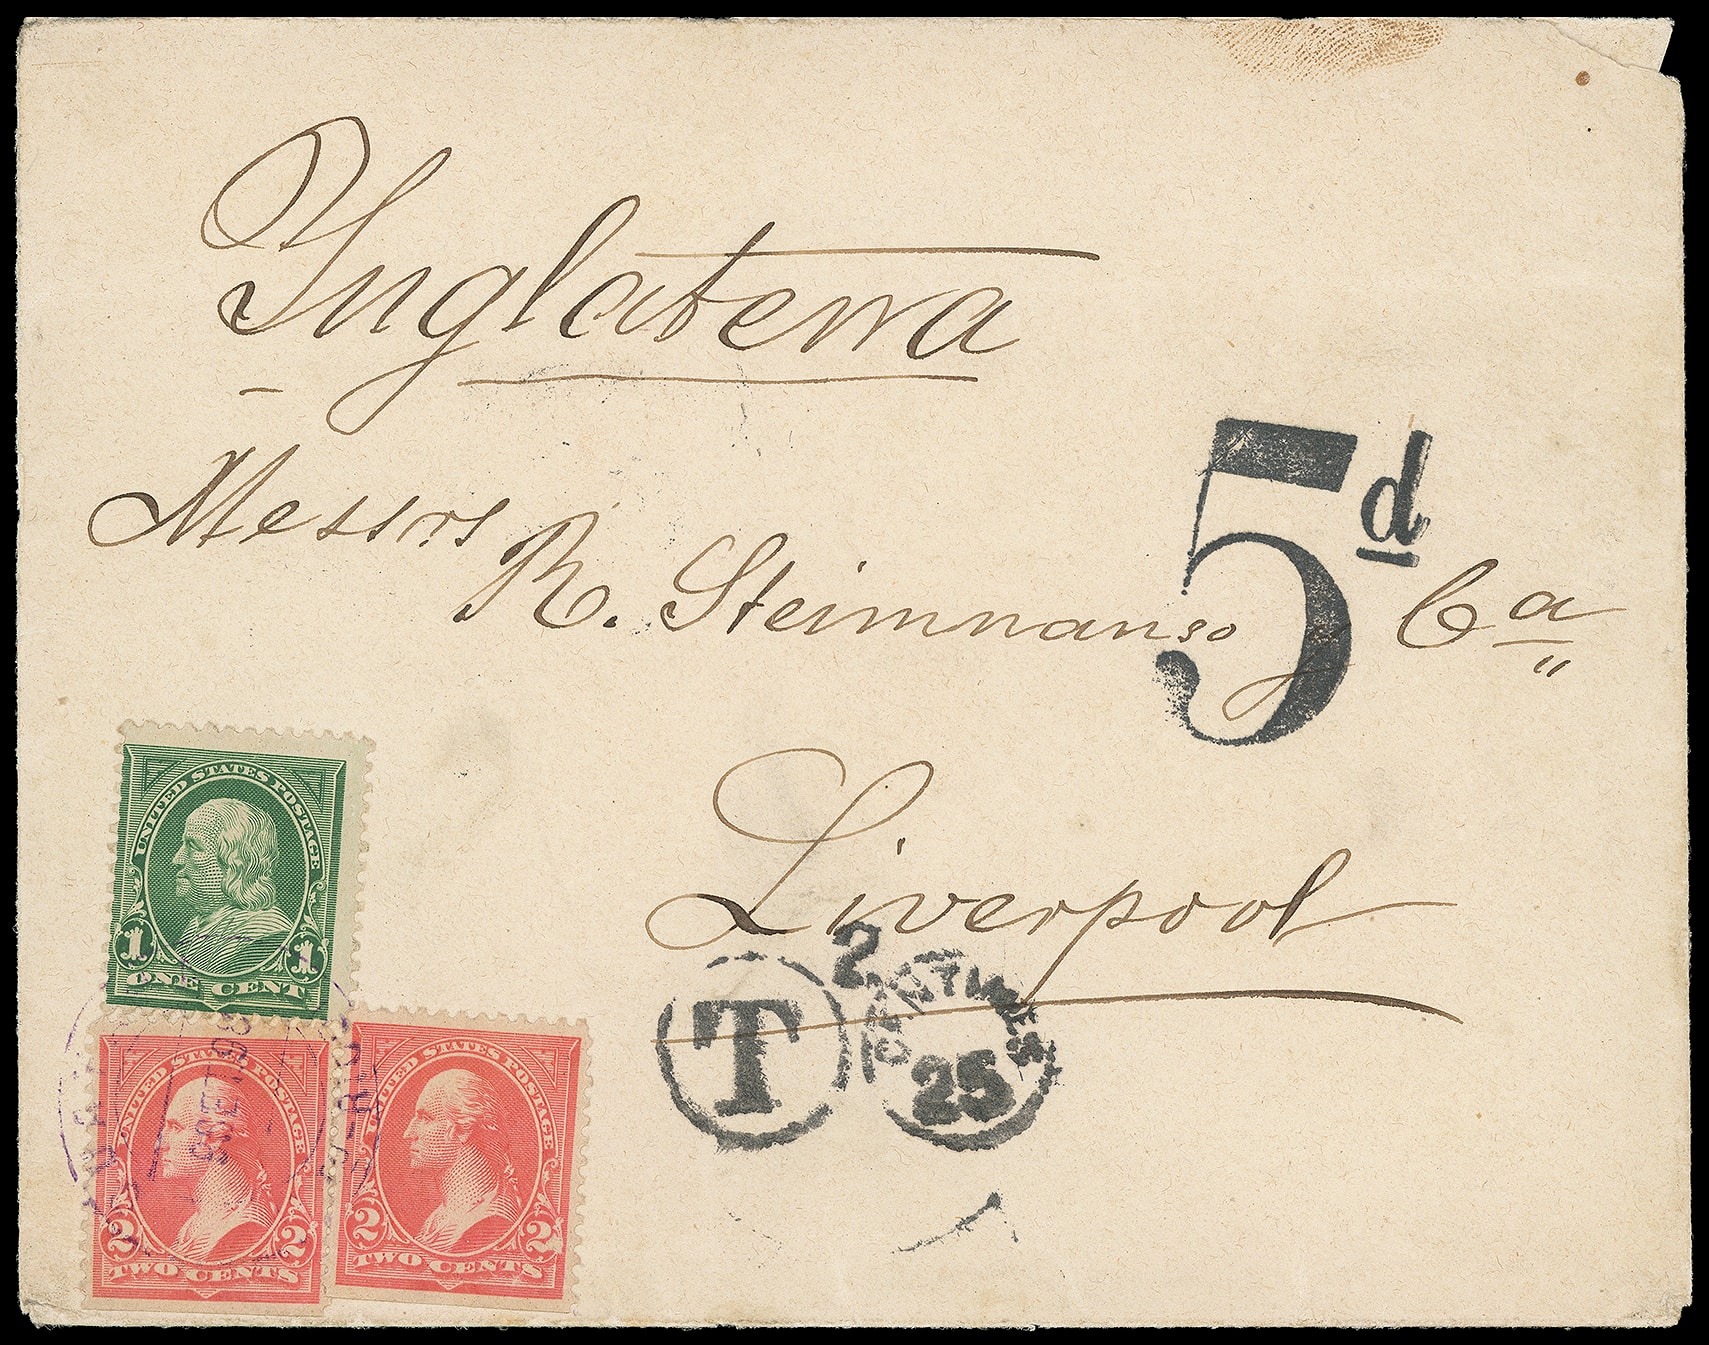 Inglaterra
Messrs
R. Steinmann y Ca
5d
Liverpool
UNITED STATES POSTAGE
1 1
ONE CENT
UNITED STATES POSTAGE
2 2
TWO CENTS
UNITED STATES POSTAGE
2 2
TWO CENTS
T
2
CENTIMES
25